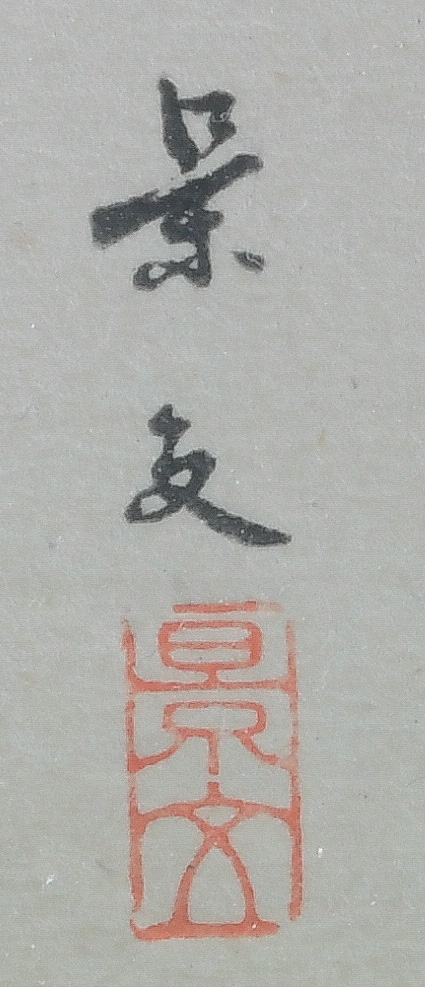 景文
景文